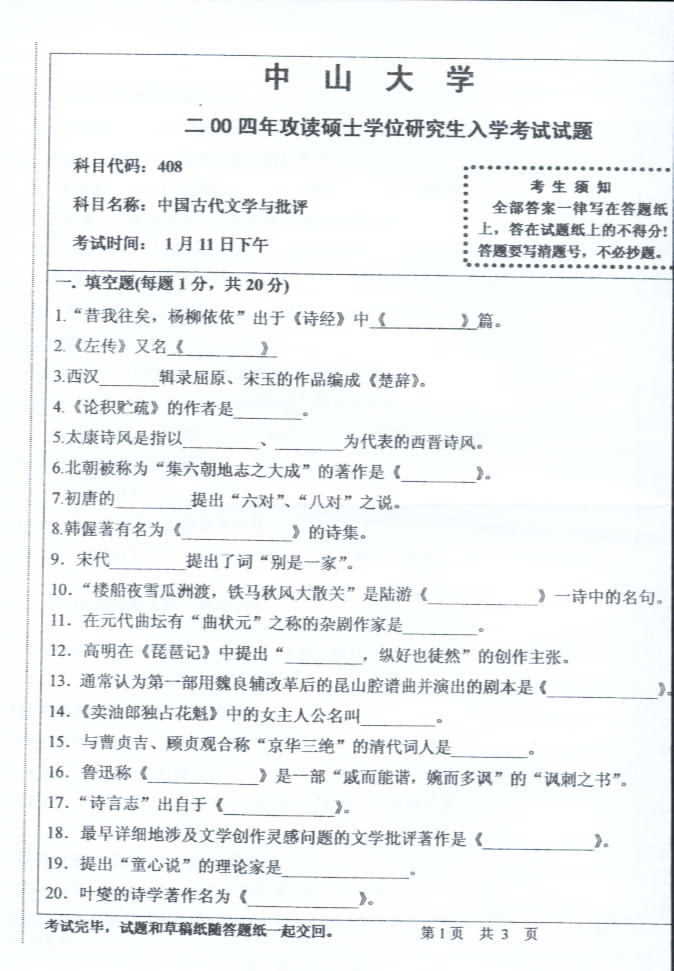 中 山 大 学
二00四年攻读硕士学位研究生入学考试试题
科目代码：408
科目名称：中国古代文学与批评
考试时间： 1月11日下午
考 生 须 知
全部答案一律写在答题纸
上，答在试题纸上的不得分！
答题要写清题号，不必抄题。
一．填空题(每题1分，共20分)
1.“昔我往矣，杨柳依依”出于《诗经》中《________》篇。
2.《左传》又名《________》
3.西汉______辑录屈原、宋玉的作品编成《楚辞》。
4.《论积贮疏》的作者是_______。
5.太康诗风是指以________、_______为代表的西晋诗风。
6.北朝被称为“集六朝地志之大成”的著作是《________》。
7.初唐的________提出“六对”、“八对”之说。
8.韩偓著有名为《___________》的诗集。
9．宋代________提出了词“别是一家”。
10．“楼船夜雪瓜洲渡，铁马秋风大散关”是陆游《___________》一诗中的名句。
11．在元代曲坛有“曲状元”之称的杂剧作家是________。
12．高明在《琵琶记》中提出“________，纵好也徒然”的创作主张。
13．通常认为第一部用魏良辅改革后的昆山腔谱曲并演出的剧本是《___________》。
14．《卖油郎独占花魁》中的女主人公名叫________。
15．与曹贞吉、顾贞观合称“京华三绝”的清代词人是________。
16．鲁迅称《___________》是一部“戚而能谐，婉而多讽”的“讽刺之书”。
17．“诗言志”出自于《___________》。
18．最早详细地涉及文学创作灵感问题的文学批评著作是《___________》。
19．提出“童心说”的理论家是_____________。
20．叶燮的诗学著作名为《___________》。
考试完毕，试题和草稿纸随答题纸一起交回。 第1页 共 3 页